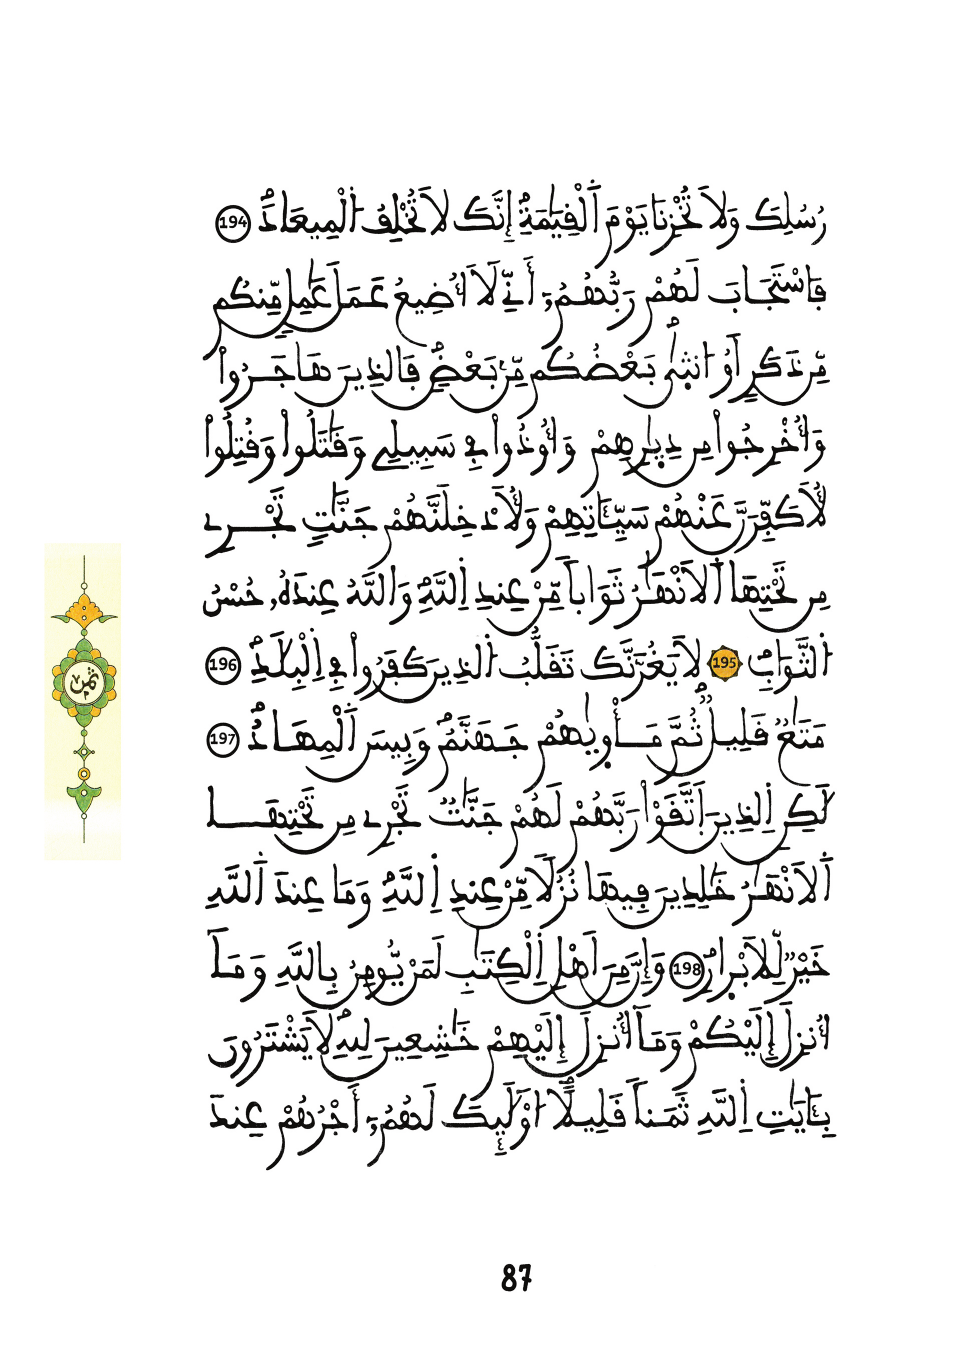 رُسُلِكَ وَلَا تُخْزِنَا يَوْمَ ٱلْقِيَٰمَةِۖ إِنَّكَ لَا تُخْلِفُ اُلْمِيعَادَۖ 194
فَاسْتَجَابَ لَهُمْ رَبُّهُمُۥٓ أَنِّے لَآ أُضِيعُ عَمَلَ عَٰمِلٖ مِّنكُم
مِّن ذَكَرٍ أَوُ ا۟نث۪ىٰۖ بَعْضُكُم مِّنۢ بَعْضٖۖ فَالذِينَ هَاجَرُواْ
وَأُخْرِجُواْ مِن دِيٰ۪رِهِمْ وَأُوذُواْ فِے سَبِيلِے وَقَٰتَلُواْ وَقُتِلُواْ
لَأُكَفِّرَنَّ عَنْهُمْ سَيِّـَٔاتِهِمْ وَلَأُدْخِلَنَّهُمْ جَنَّٰتٖ تَجْرِے
مِن تَحْتِهَا اَ۬لَانْهَٰرُ ثَوَاباٗ مِّنْ عِندِ اِ۬للَّهِۖ وَاللَّهُ عِندَهُۥ حُسْنُ
اُ۬لثَّوَابِۖ 195 لَا يَغُرَّنَّكَ تَقَلُّبُ اُ۬لذِينَ كَفَرُواْ فِے اِ۬لْبِلَٰدِۖ 196
مَتَٰعٞ قَلِيلٞ ثُمَّ مَأْو۪يٰهُمْ جَهَنَّمُۖ وَبِيسَ اَ۬لْمِهَادُۖ 197
لَٰكِنِ اِ۬لذِينَ اَ۪تَّقَوْاْ رَبَّهُمْ لَهُمْ جَنَّٰتٞ تَجْرِے مِن تَحْتِهَا
اَ۬لَانْهَٰرُ خَٰلِدِينَ فِيهَا نُزُلاٗ مِّنْ عِندِ اِ۬للَّهِۖ وَمَا عِندَ اَ۬للَّهِ
خَيْرٞ لِّلَابْر۪ارِۖ 198 وَإِنَّ مِنَ اَهْلِ اِ۬لْكِتَٰبِ لَمَنْ يُّومِنُ بِاللَّهِ وَمَآ
أُنزِلَ إِلَيْكُمْ وَمَآ أُنزِلَ إِلَيْهِمْ خَٰشِعِينَ لِلهِۖ لَا يَشْتَرُونَ
بِـَٔايَٰتِ اِ۬للَّهِ ثَمَناٗ قَلِيلاًۖ ا۟وْلَٰٓئِكَ لَهُمُۥٓ أَجْرُهُمْ عِندَ
ثمن
87